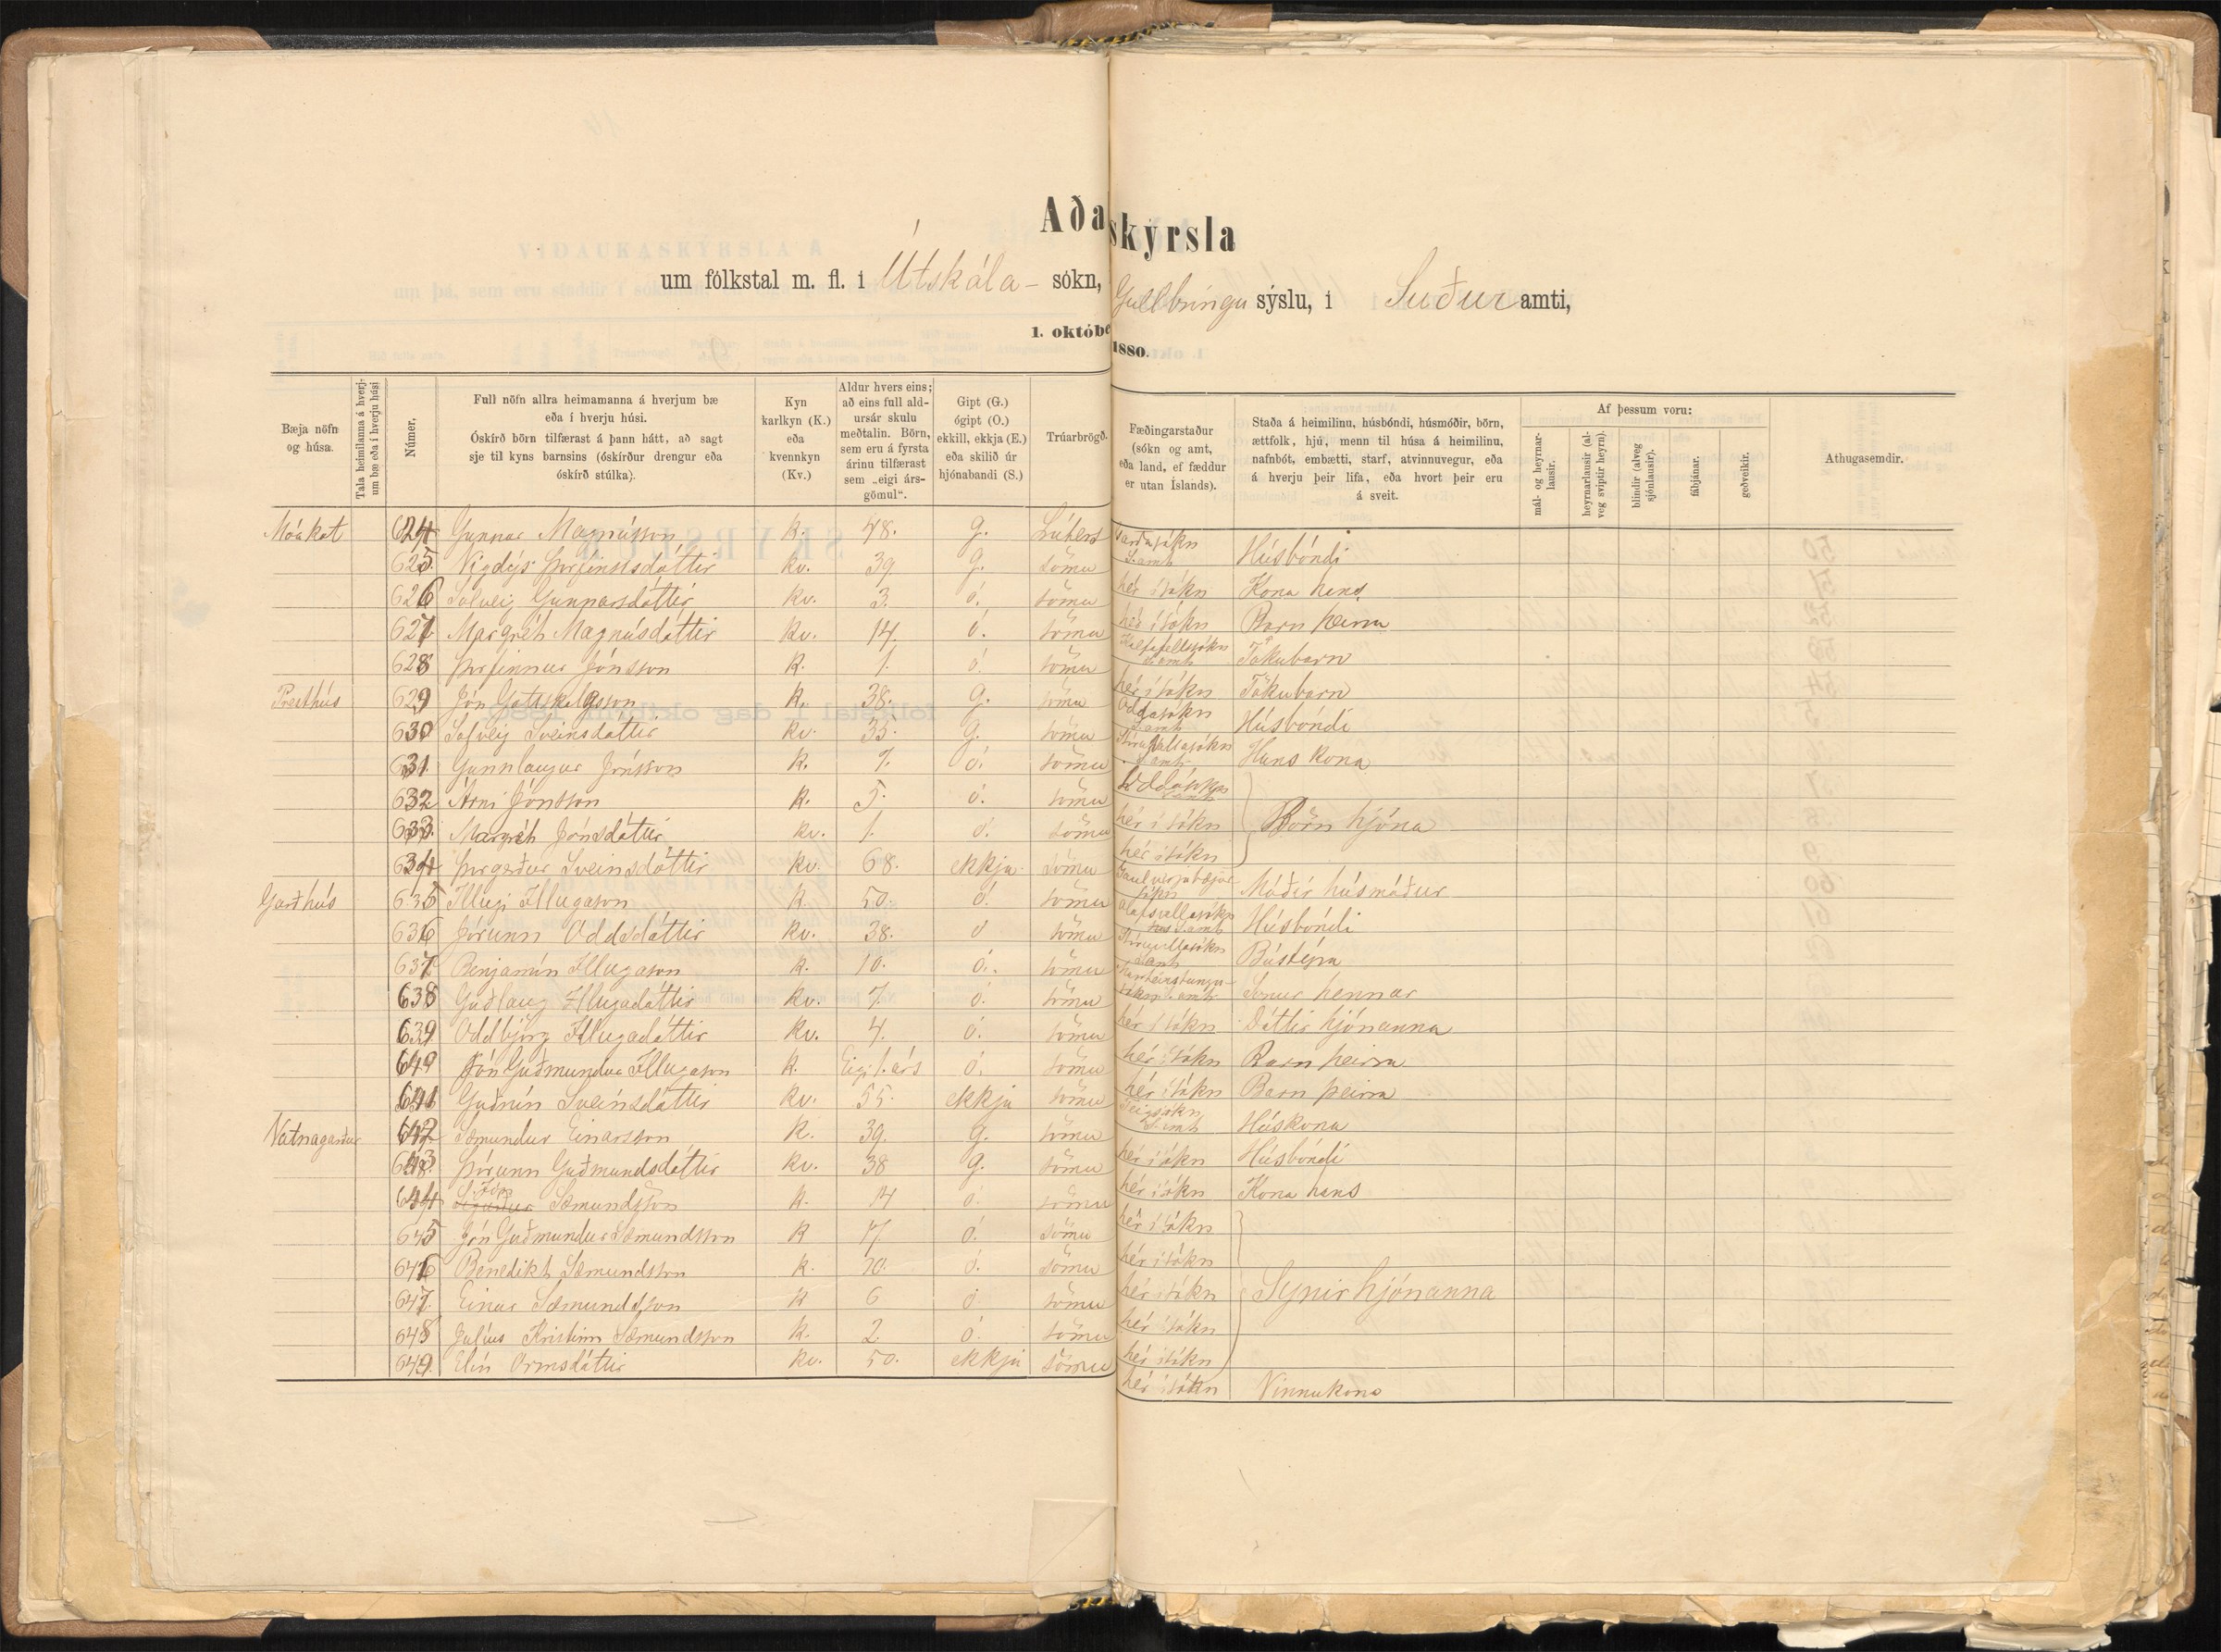 Aðaskýrsla
um fólkstal m. fl. i Útskála- sókn, Gullbringu sýslu, i Suður amti,
1. októbe 1880.
Bæja nöfn og húsa.
Tala heimilanna á hverjum bæ eða í hverju húsi
Númer.
Full nöfn allra heimamanna á hverjum bæ eða í hverju húsi.
Óskírð börn tilfærast á þann hátt, að sagt sje til kyns barnsins (óskírður drengur eða óskírð stúlka).
Kyn karlkyn (K.) eða kvennkyn (Kv.)
Aldur hvers eins; að eins full aldursár skulu meðtalin. Börn, sem eru á fyrsta árinu tilfærast sem „eigi ársgömul“.
Gipt (G.) ógipt (O.) ekkill, ekkja (E.) eða skilið úr hjónabandi (S.)
Trúarbrögð.
Fæðingarstaður (sókn og amt, eða land, ef fæddur er utan Íslands).
Staða á heimilinu, húsbóndi, húsmóðir, börn, ættfolk, hjú, menn til húsa á heimilinu, nafnbót, embætti, starf, atvinnuvegur, eða á hverju þeir lifa, eða hvort þeir eru á sveit.
Af þessum voru:
mál- og heyrnarlausir.
heyrnarlausir (alveg sviptir heyrn).
blindir (alveg sjónlausir).
fábjánar.
geðveikir.
Athugasemdir.
Móakot 624 Gunnar Magnússon k. 48. g. Lúthers Garðasókn S.amt Húsbóndi
625. Vigdýs Þorfinnsdóttir kv. 39 g. sömu hér í sókn Kona hans
626 Solveig Gunnarsdóttir kv. 3. ó. sömu hér í sókn Barn þeirra
627 Margrét Magnúsdóttir kv. 14. ó. sömu Kalfafellssókn S.amt Tökubarn
628 Þorfinnur Jónsson k. 1. ó. sömu hér í sókn Tökubarn
Presthús 629 Jón Gottskálgsson k. 38. g. sömu Oddasókn S.amt Húsbóndi
630 Solveig Sveinsdóttir kv. 35. g. sömu S.amt Hans kona
631. Gunnlaugur Jónsson k. 7. ó. sömu Oddasókn S.amt
632 Árni Jónsson k. 5. ó. sömu hér í sókn Börn hjóna
633. Margrét Jónsdóttir kv. 1. ó. sömu hér í sókn
634 Þorgerður Sveinsdóttir kv. 68. ekkja sömu Gaulverjabæjarsókn Móðir húsmóður
Garðhús 635 Illugi Illugason k. 50. ó. sömu Olafsvallasókn S.amt Húsbóndi
636 Jórunn Oddsdóttir kv. 38. ó sömu S.amt Bústýra
637 Benjamín Illugason k. 10. ó. sömu sókn S.amt Sonur hennar
638 Guðlaug Illugadóttir kv. 7. ó. sömu hér í sókn Dóttir hjónanna
639 Oddbjörg Illugadóttir kv. 4. ó. sömu hér í sókn Barn þeirra
640 Jón Guðmundur Illugason k. Eigi 1. árs ó. sömu hér í sókn Barn þeirra
641 Guðrún Sveinsdóttir kv. 55. ekkja sömu S.amt Húskona
Vatnagarður 642 Sæmundur Einarsson k. 39. g. sömu hér í sókn Húsbóndi
643 Þórunn Guðmundsdóttir kv. 38 g. sömu hér í sókn Kona hans
644 Sæmundsson k. 14 ó. sömu hér í sókn
645 Jón Guðmundur Sæmundsson k 17 ó. sömu hér í sókn
646 Benedikt Sæmundsson k. 10. ó. sömu hér í sókn Synir hjónanna
647 Einar Sæmundsson k 6 ó sömu hér í sókn
648 Julíus Kristinn Sæmundsson k. 2. ó. sömu hér í sókn
649. Elín Ormsdóttir kv. 50. ekkja sömu hér í sókn Vinnukona